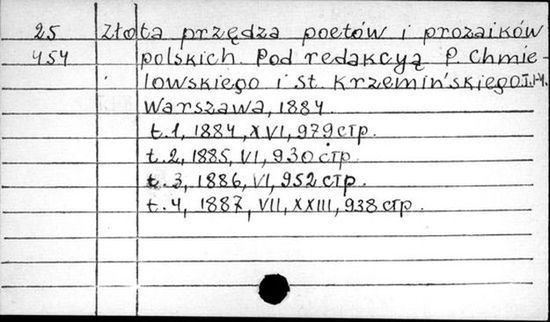 25 Złota przędza poetów i prozaików
454 polskich. Pod redakcyą P. Chmie-
lowskiego i St. Krzemińskiego T.1-4.
Warszawa, 1884
t.1, 1884, XVI, 979 стр.
t.2, 1885, VI, 930 стр.
t.3, 1886, VI, 952 стр.
t.4, 1887, VII, XXIII, 938 стр.